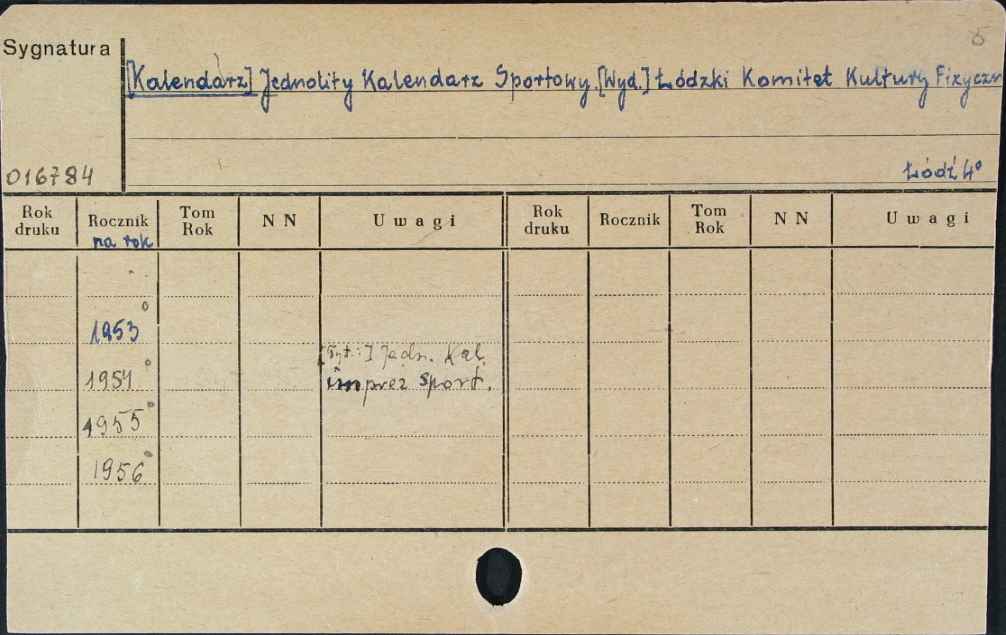 5
Sygnatura
[Kalendarz] Jednolity Kalendarz Sportowy. [Wyd.] Łódzki Komitet Kultury Fizyczn
016784
Łódź 4°
Rok druku Rocznik na rok Tom Rok NN Uwagi Rok druku Rocznik Tom Rok NN Uwagi
1953°
[Tyt.:] Jedn. Kal.
1954° imprez sport.
1955°
1956°